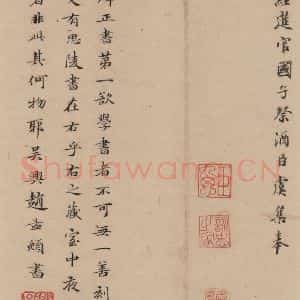 經筵官國子祭酒臣虞集奉
碑正書第一欲學書者不可無一善刻
又有思陵書在右乎右之藏室中夜
者非此其何物耶吳興趙孟頫書
Shufawang.CN